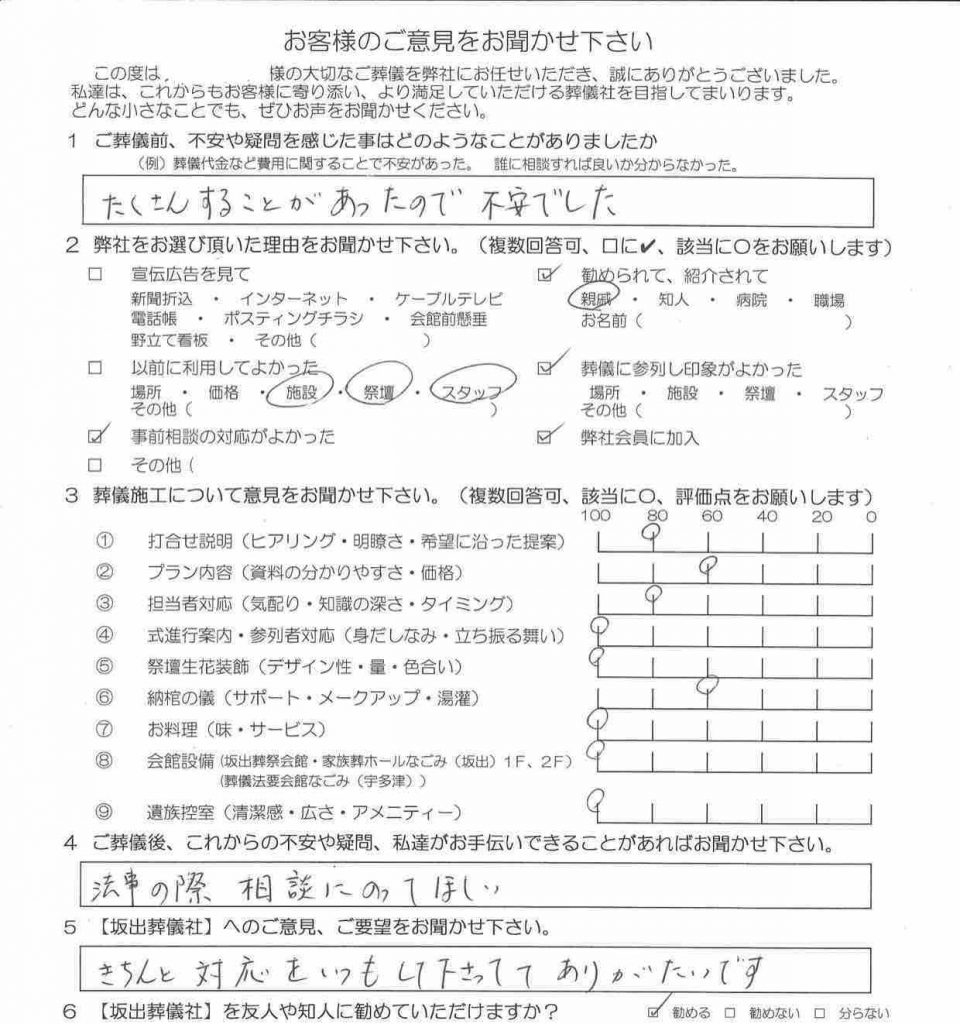 お客様のご意見をお聞かせ下さい
この度は、 様の大切なご葬儀を弊社にお任せいただき、誠にありがとうございました。
私達は、これからもお客様に寄り添い、より満足していただける葬儀社を目指してまいります。
どんな小さなことでも、ぜひお声をお聞かせください。
1 ご葬儀前、不安や疑問を感じた事はどのようなことがありましたか
(例)葬儀代金など費用に関することで不安があった。 誰に相談すれば良いか分からなかった。
たくさんすることがあったので 不安でした
2 弊社をお選び頂いた理由をお聞かせ下さい。(複数回答可、口に✔、該当に〇をお願いします)
□ 宣伝広告を見て
新聞折込 ・ インターネット ・ ケーブルテレビ
電話帳 ・ ポスティングチラシ ・ 会館前懸垂
野立て看板 ・ その他( )
☑ 勧められて、紹介されて
親戚 ・ 知人 ・ 病院 ・ 職場
お名前( )
□ 以前に利用してよかった
場所 ・ 価格 ・ 施設 ・ 祭壇 ・ スタッフ
その他( )
☑ 葬儀に参列し印象がよかった
場所 ・ 施設 ・ 祭壇 ・ スタッフ
その他( )
☑ 事前相談の対応がよかった
☑ 弊社会員に加入
□ その他(
3 葬儀施工について意見をお聞かせ下さい。(複数回答可、該当に〇、評価点をお願いします)
100 80 60 40 20 0
① 打合せ説明(ヒアリング・明瞭さ・希望に沿った提案)
② プラン内容(資料の分かりやすさ・価格)
③ 担当者対応(気配り・知識の深さ・タイミング)
④ 式進行案内・参列者対応(身だしなみ・立ち振る舞い)
⑤ 祭壇生花装飾(デザイン性・量・色合い)
⑥ 納棺の儀(サポート・メークアップ・湯灌)
⑦ お料理(味・サービス)
⑧ 会館設備(坂出葬祭会館・家族葬ホールなごみ(坂出)1F、2F)
(葬儀法要会館なごみ(宇多津))
⑨ 遺族控室(清潔感・広さ・アメニティー)
4 ご葬儀後、これからの不安や疑問、私達がお手伝いできることがあればお聞かせ下さい。
法事の際 相談にのってほしい
5 【坂出葬儀社】へのご意見、ご要望をお聞かせ下さい。
きちんと 対応を いつも して下さってて ありがたいです
6 【坂出葬儀社】を友人や知人に勧めていただけますか? ☑ 勧める □ 勧めない □ 分らない